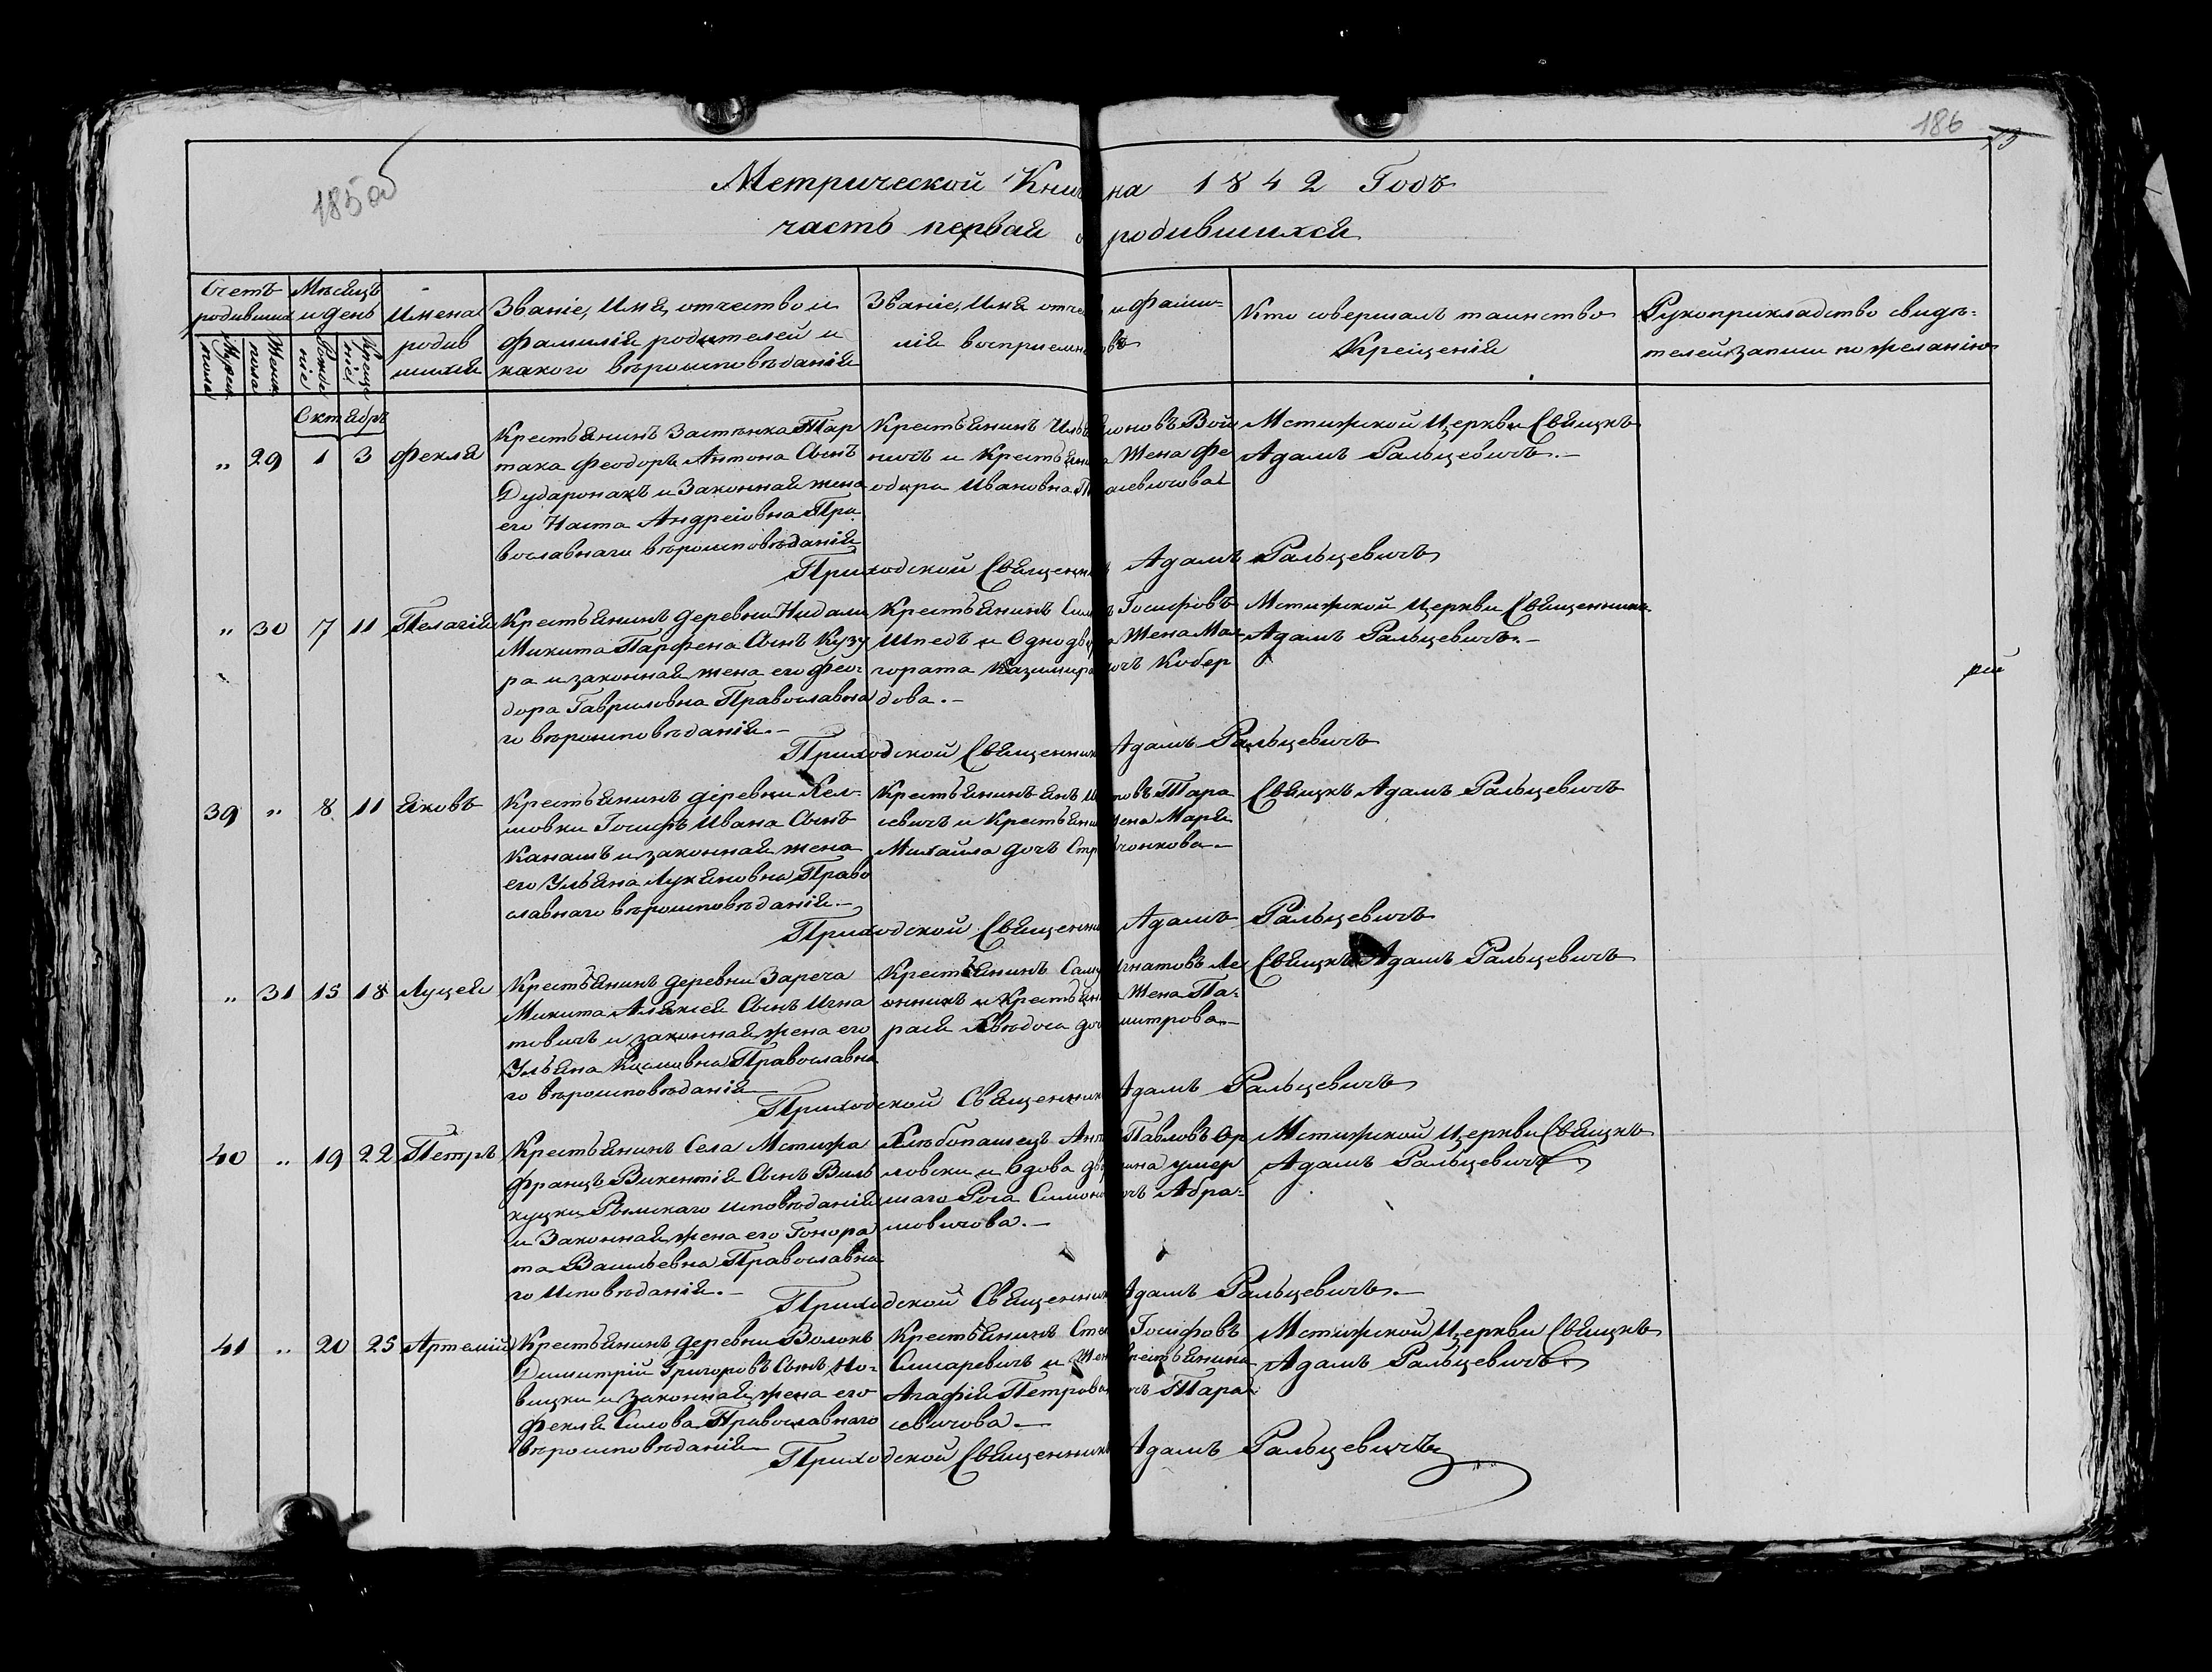 186
185об
Метрической Книг на 1842 Годъ
часть первая о родившихся
Счетъ родивших
Мѣсяцъ и день
Имена родив шихся
Званіе, Имя, отчество и фамилія родителей и какого вѣроисповѣданія
Званіе, Имя отчес и фами= лія воспріемн овъ
Кто совершалъ таинство Крещенія
Рукоприкладство свидѣ= телей записи по желанію
Мужск пола
Женск пола
Рожде ніе
Креще ніе
Октябрь
" 29 1 3 Фекля
Крестьянинъ Застѣнка Тар
така Феодоръ Антона Сынъ
Дударонакъ и Законная жена
его Наста Андреіовна Пра
вославнаго вѣроисповѣданія
Крестьянинъ Иль оновъ Вой
ничъ и Крестьян а Жена Фе
одора Ивановна алевичова
Мстижской Церкви Свящкъ
Адамъ Ральцевичъ.-
Приходской Священни Адамъ Ральцевичъ
" 30 7 11 Пелагія
Крестьянинъ деревни Нидали
Микита Парфена Сынъ Кузу
ра и законная жена его Фео-
дора Гавриловна Православна
го вѣроисповѣданія.-
Крестьянинъ Сил Іосифовъ
Шпедъ и Однодв Жена Мал
гората Казимир очъ Кобер
дова.-
Мстижской Церкви Священникъ
Адамъ Ральцевичъ.-
рій
Приходской Священник Адамъ Ральцевичъ
39 " 8 11 Яковъ
Крестьянинъ деревни Хел-
мовки Іосифъ Ивана Сынъ
Канашъ и законная жена
его Ульяна Лукяновна Право
славнаго вѣроисповѣданія.-
Крестьянинъ Янъ И овъ Тара
севичъ и Крестьян ена Марія
Михайла дочъ Стр чонкова.-
Свящкъ Адамъ Ральцевичъ
Приходской Священни Адамъ Ральцевичъ
" 31 15 18 Луцея
Крестьянинъ деревни Зареча
Микита Алексія Сынъ Игна
товичъ и законная жена его
Ульяна Православна
го вѣроисповѣданія
Крестьянинъ Саму Игнатовъ Ле
онникъ и Крестьян Жена Па-
рася Хвядоса доч митрова.-
Свящкъ Адамъ Ральцевичъ
Приходской Священник Адамъ Ральцевичъ
40 " 19 22 Петръ
Крестьянинъ Села Мстижа
Францъ Викентія Сынъ Виль
куцки Рымскаго исповѣданія
и Законная жена его Гонора
та Васильевна Православна
го Исповѣданія.-
Хлѣбопашецъ Ант Павловъ Ор
ловски и Вдова дв ина умер
шаго Роза Симон очъ Абра-
мовичова.-
Мстижской Церкви Свящкъ
Адамъ Ральцевичъ
Приходской Священник Адамъ Ральцевичъ.-
41 " 20 25 Артемій
Крестьянинъ деревни Волокъ
Димитрій Григоровъ Сынъ Но-
вицки и законная жена его
Фекля Силова Православнаго
вѣроисповѣданія
Крестьянинъ Сте Іосифовъ
Слисаревичъ и Жен крестьянина
Агафія Петрова чъ Тара
севичова.-
Мстижской Церкви Свящкъ
Адамъ Ральцевичъ
Приходской Священникъ Адамъ Ральцевичъ